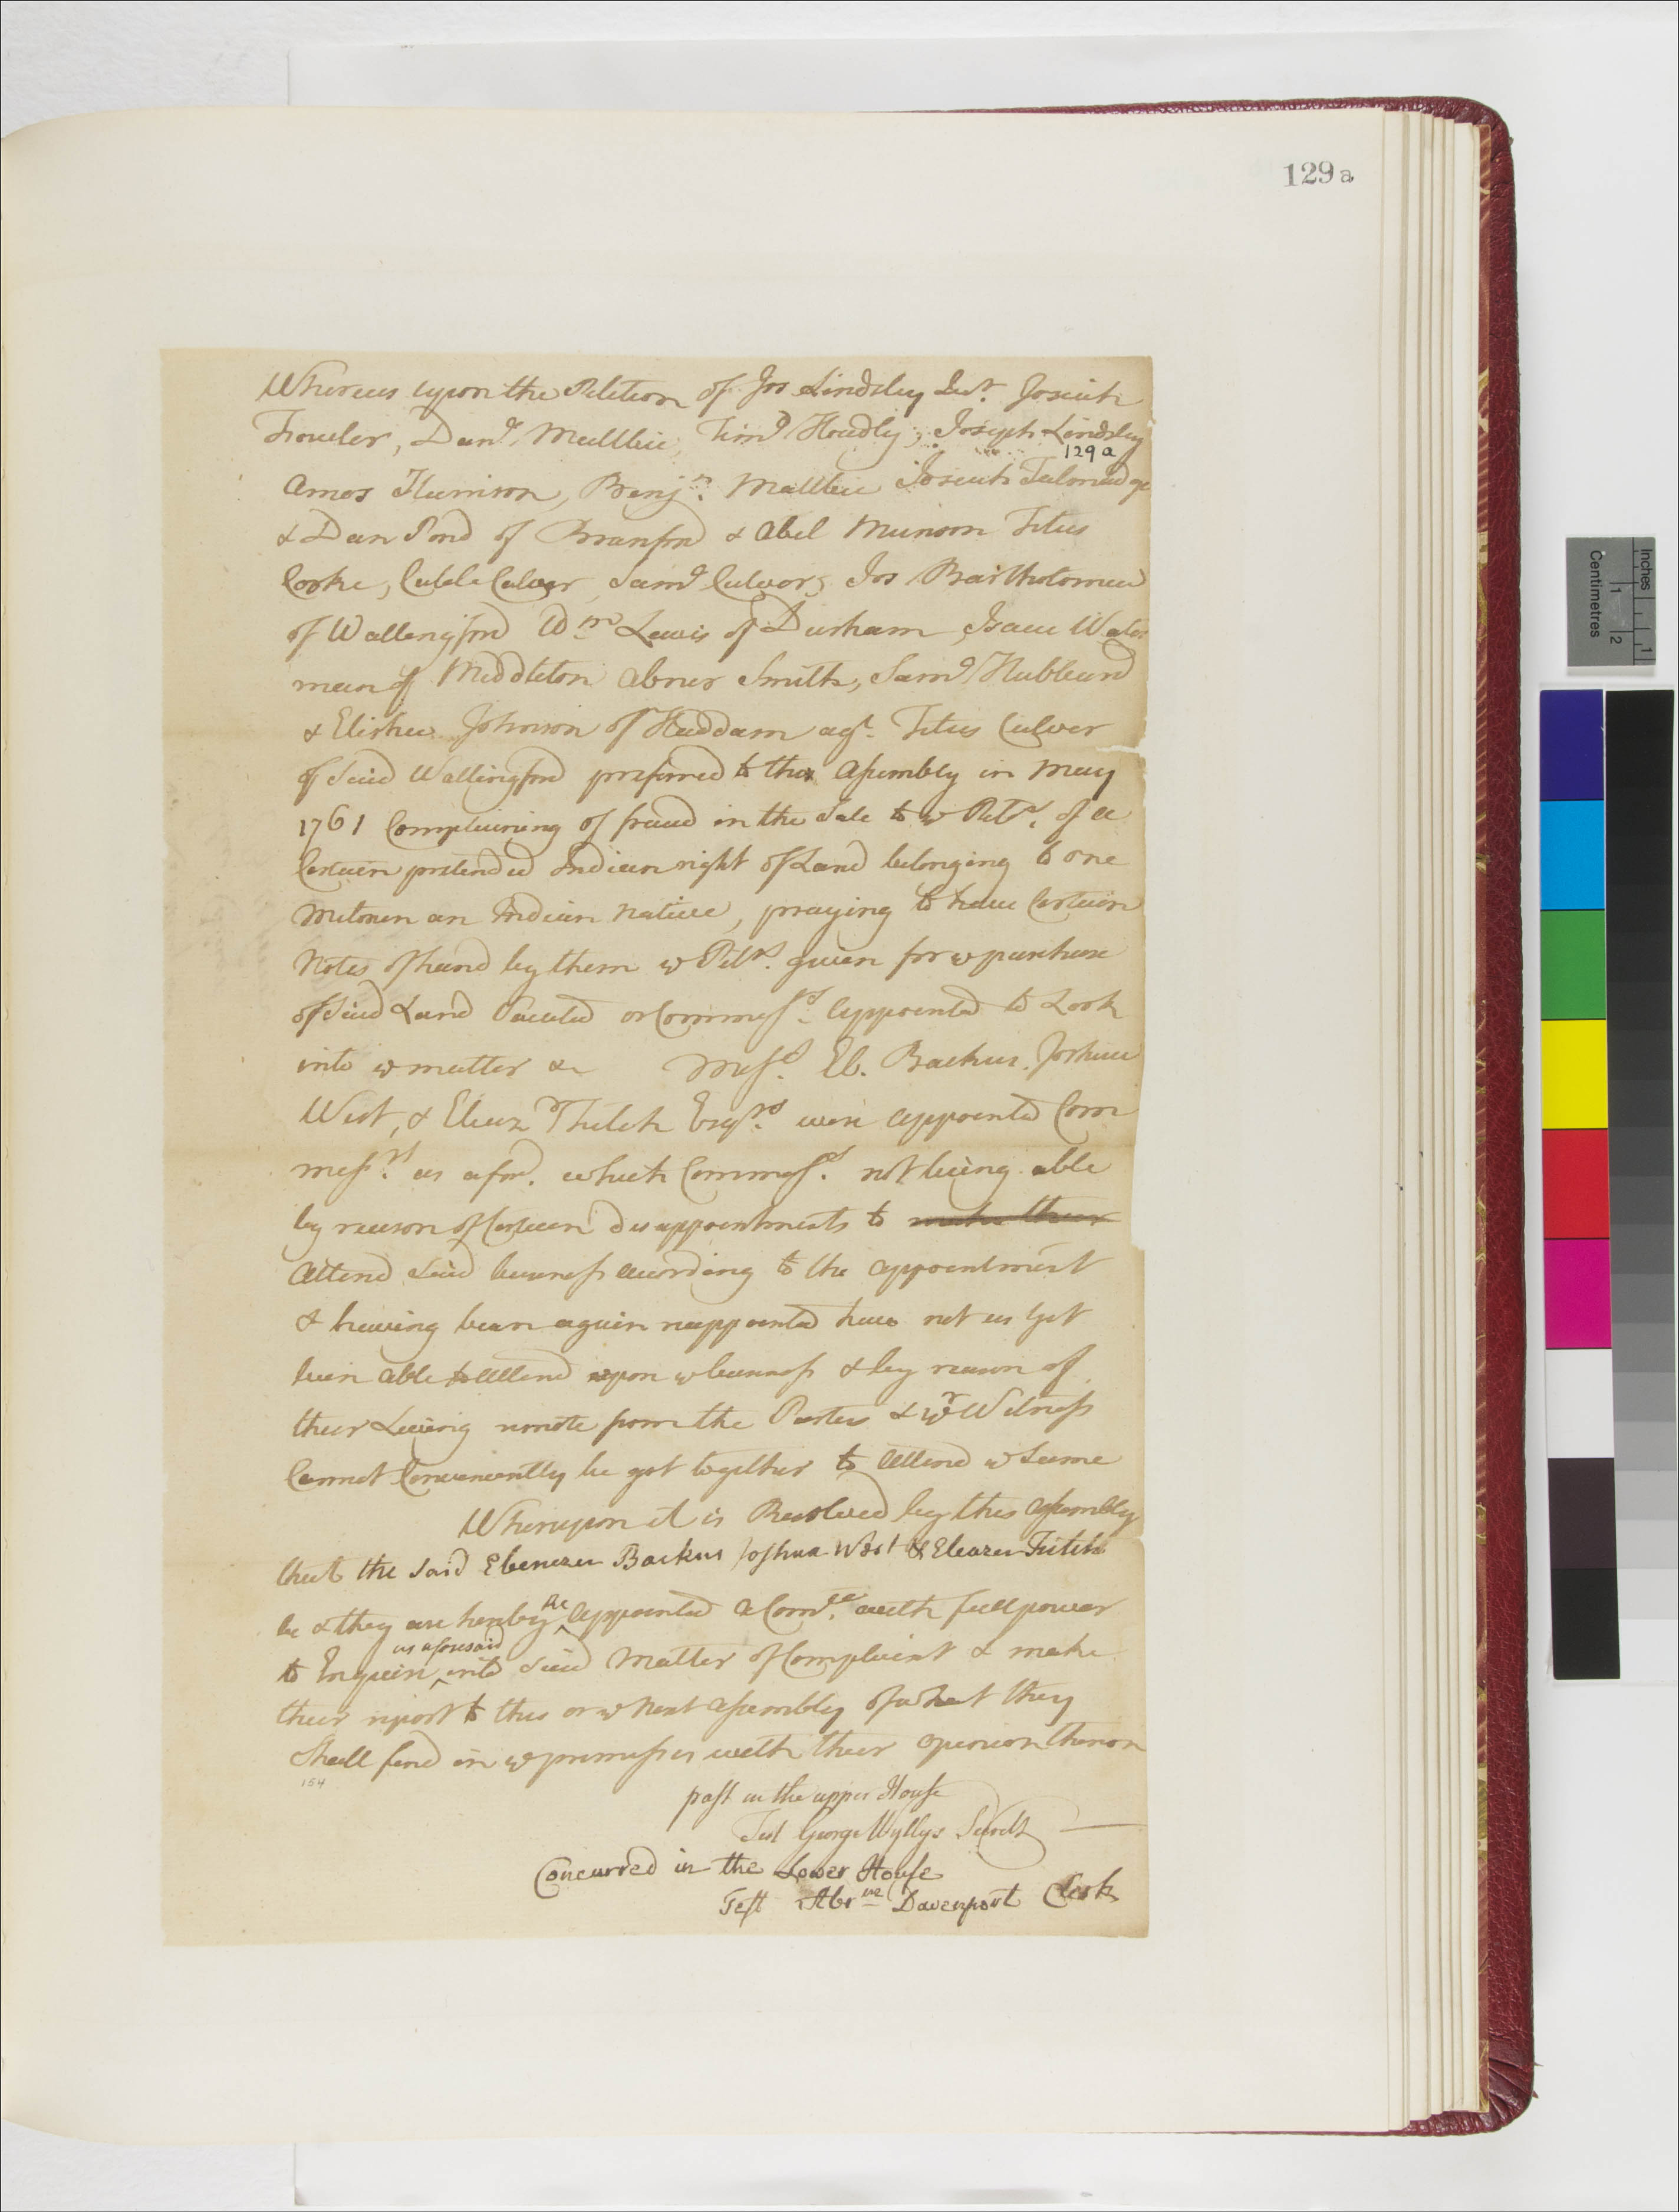 129a
Whereas upon the Petition of Jos Lindsley Jur. Josiah
Fowler, Danl. Maltbie, Timo Hoadly, Joseph Lindsley
129a
Amos Harrison, Benjn. Maltbie Josiah Talmadge
& Dan Pond of Branford & Abel Munson Titus
Cooke, Caleb Culver, Saml Culver, Jos Bartholomew
of Wallingford Wm Lewis of Durham, Isaac Water
man of Middleton Abner Smith, Saml Hubbard
& Elisha Johnson of Haddam agt. Titus Culver
of said Wallingford preferred to this Assembly in May
1761 Complaining of fraud in the Sale to ye Petrs. of a
Certain pretended Indian right of Land belonging to one
an Indian native, praying to have Certain
Notes of hand by them ye Petrs. given for ye purchase
of said Land Vacated or Commssrs. Appointed to Look
into ye matter &c Messrs. Eb. Backus. Joshua
West, & Eleazr Fitch Esqrs. were appointed Com
messrs. as aford. which Commssrs. not being able
by reason of Certain disappointments to make their
Attend said business according to the appointment
& having been again reappointed have not as yet
been able to attend upon ye business & by reason of
their Living remote from the Parties & yr Witness
Cannot Conveniently be got together to attend ye same
Whereupon it is Resolved by this Assembly
that the said Ebenezer Backus Joshua West & Eleazer Fitch
be & they are hereby Re Appointed a Comtee with full power
as aforesaid
to Enquire into said Matter of Complaint & make
their report to this or ye Next Assembly of what they
Shall find in ye premisses with their opinion thereon
154
past in the upper House
Test George Wyllys Secretr
Concurred in the Lower House
Test Abrm Davenport Clerk